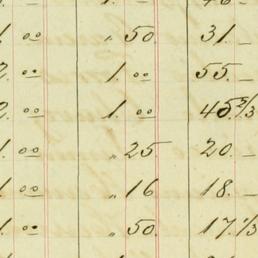 1. 00 " 50. 31. –
2. 00 1. 00 55. –
2. 00 1. 00 45 2/3
1. 00 " 25 20. –
1. 00 " 16 18. –
1. 00 " 50. 17. 1/3